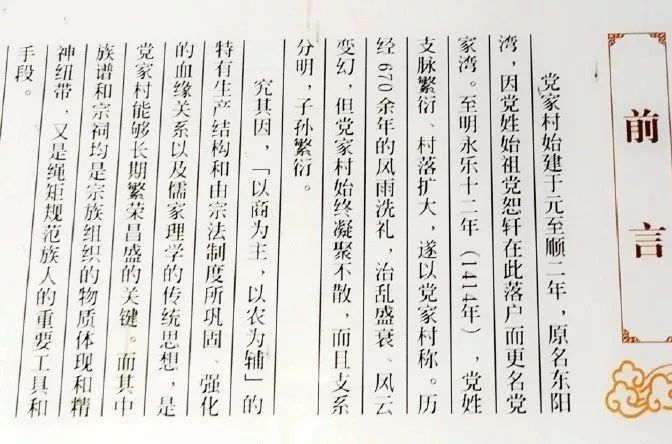 前言
党家村始建于元至顺二年，原名东阳
湾，因党姓始祖党恕轩在此落户而更名党
家湾。至明永乐十二年（1414年），党姓
支脉繁衍、村落扩大，遂以党家村称。历
经 670 余年的风雨洗礼，治乱盛衰、风云
变幻，但党家村始终凝聚不散，而且支系
分明，子孙繁衍。
究其因，「以商为主，以农为辅」的
特有生产结构和由宗法制度所巩固、强化
的血缘关系以及儒家理学的传统思想，是
党家村能够长期繁荣昌盛的关键。而其中
族谱和宗祠均是宗族组织的物质体现和精
神纽带，又是绳矩规范族人的重要工具和
手段。